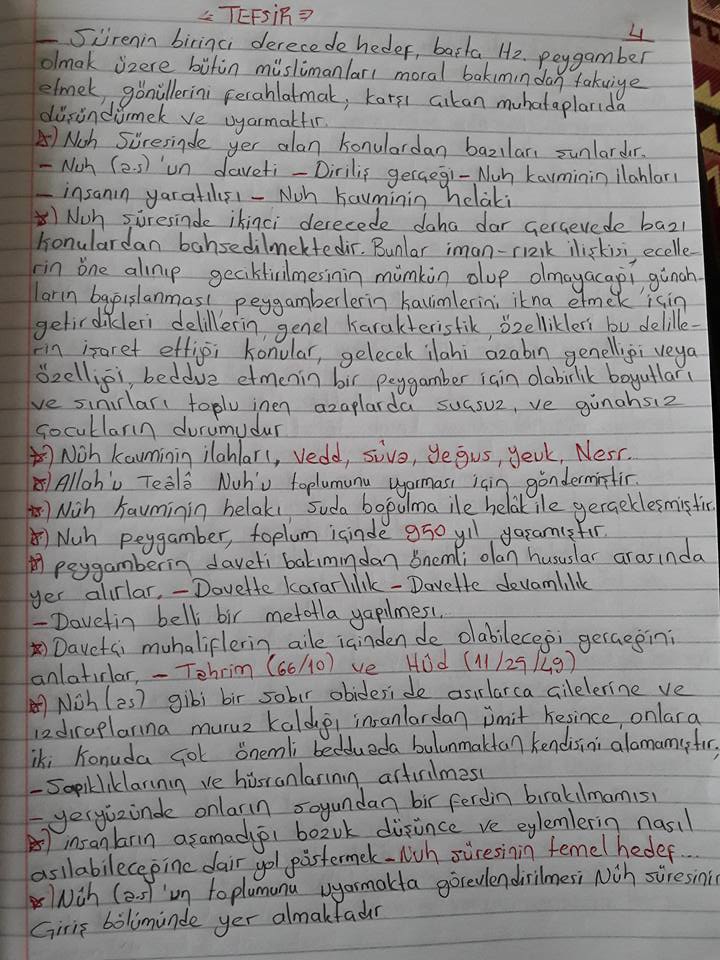 = TEFSİR =
4
- Sûrenin birinci derecede hedef, başta Hz. peygamber
olmak üzere bütün müslümanları moral bakımından takviye
etmek, gönüllerini ferahlatmak, karşı çıkan muhataplarıda
düşündürmek ve uyarmaktır.
*) Nuh Sûresinde yer alan konulardan bazıları şunlardır.
- Nuh (a.s)'un daveti - Diriliş gerçeği - Nuh kavminin ilahları
- insanın yaratılışı - Nuh kavminin helâki
*) Nuh sûresinde ikinci derecede daha dar çerçevede bazı
konulardan bahsedilmektedir. Bunlar iman-rızık ilişkisi, ecelle-
rin öne alınıp geciktirilmesinin mümkün olup olmayacağı, günah-
ların bağışlanması peygamberlerin kavimlerini ikna etmek için
getirdikleri delillerin, genel karakteristik, özellikleri bu delille-
rin işaret ettiği konular, gelecek ilahi azabın genelliği veya
özelliği, beddua etmenin bir peygamber için olabirlik boyutları
ve sınırları toplu inen azaplarda suçsuz, ve günahsız
çocukların durumudur
*) Nûh kavminin ilahları, Vedd, Sûva, Yeğus, Yeuk, Nesr.
*) Allah'u Teâlâ Nuh'u toplumunu uyarması için göndermiştir.
*) Nûh kavminin helakı, suda boğulma ile helâk ile gerçekleşmiştir.
*) Nuh peygamber, toplum içinde 950 yıl yaşamıştır.
*) peygamberin daveti bakımından önemli olan hususlar arasında
yer alırlar. - Davette kararlılık - Davette devamlılık
- Davetin belli bir metotla yapılması.
*) Davetçi muhaliflerin aile içinden de olabileceği gerçeğini
anlatırlar. - Tahrim (66/10) ve Hûd (11/29/49)
*) Nûh (as) gibi bir sabır abidesi de asırlarca çilelerine ve
ızdıraplarına muruz kaldığı insanlardan ümit kesince, onlara
iki konuda çok önemli bedduada bulunmaktan kendisini alamamıştır;
- Sapıklıklarının ve hüsranlarının artırılması
- yeryüzünde onların soyundan bir ferdin bırakılmaması
*) insanların aşamadığı bozuk düşünce ve eylemlerin nasıl
aşılabileceğine dair yol göstermek - Nuh sûresinin temel hedef...
*) Nûh (a.s)'un toplumunu uyarmakta görevlendirilmesi Nûh sûresinin
Giriş bölümünde yer almaktadır